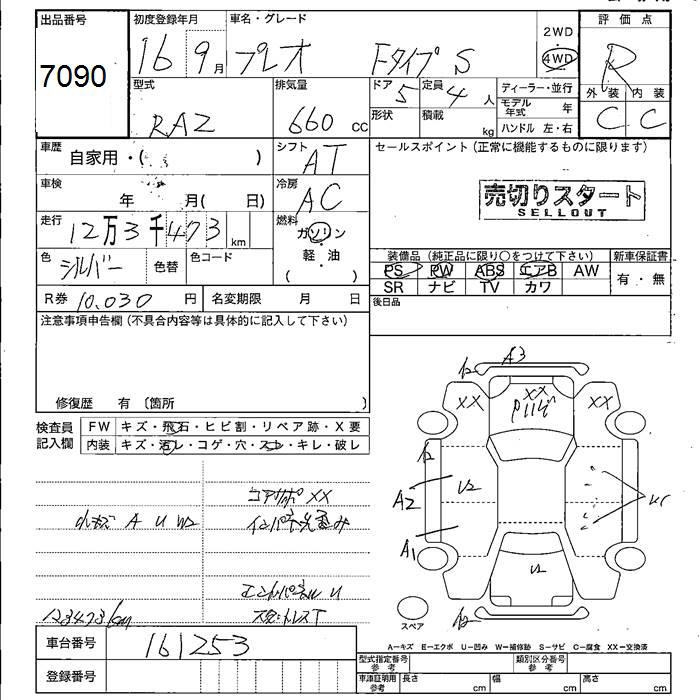 出品番号 初度登録年月 車名・グレード 2WD 評価点
7090 16 9月 プレオ Fタイプ S 4WD R
型式 排気量 ドア 5 定員 4人 ディーラー・並行 外装 内装
RA2 660 cc 形状 積載 kg モデル年式 年 C C
ハンドル 左・右
車歴 自家用・( ) シフト AT セールスポイント(正常に機能するものに限ります)
車検 年 月( 日) 冷房 AC 売切りスタート
SELLOUT
走行 12万3千473km 燃料 ガソリン・軽・油 ( )
色 シルバー 色替 色コード 装備品(純正品に限り○をつけて下さい) 新車保証書
PS PW ABS エアB AW 有・無
SR ナビ TV カワ
R券 10.030円 名変期限 月 日 後日品
注意事項申告欄(不具合内容等は具体的に記入して下さい)
修復歴 有 〔箇所 〕
検査員記入欄 FW キズ・飛石・ヒビ割・リペア跡・X要
内装 キズ・汚レ・コゲ・穴・スレ・キレ・破レ
A3
XX XX XX
コアサポXX
小キズ A U W2
A2
A1
エンドパネルU
123473km スタットレスT
スペア
A-キズ E-エクボ U-凹み W-補修跡 S-サビ C-腐食 XX-交換済
車台番号 161253
登録番号
型式指定番号 参考 類別区分番号 参考
車庫証明 参考 長さ cm 幅 cm 高さ cm